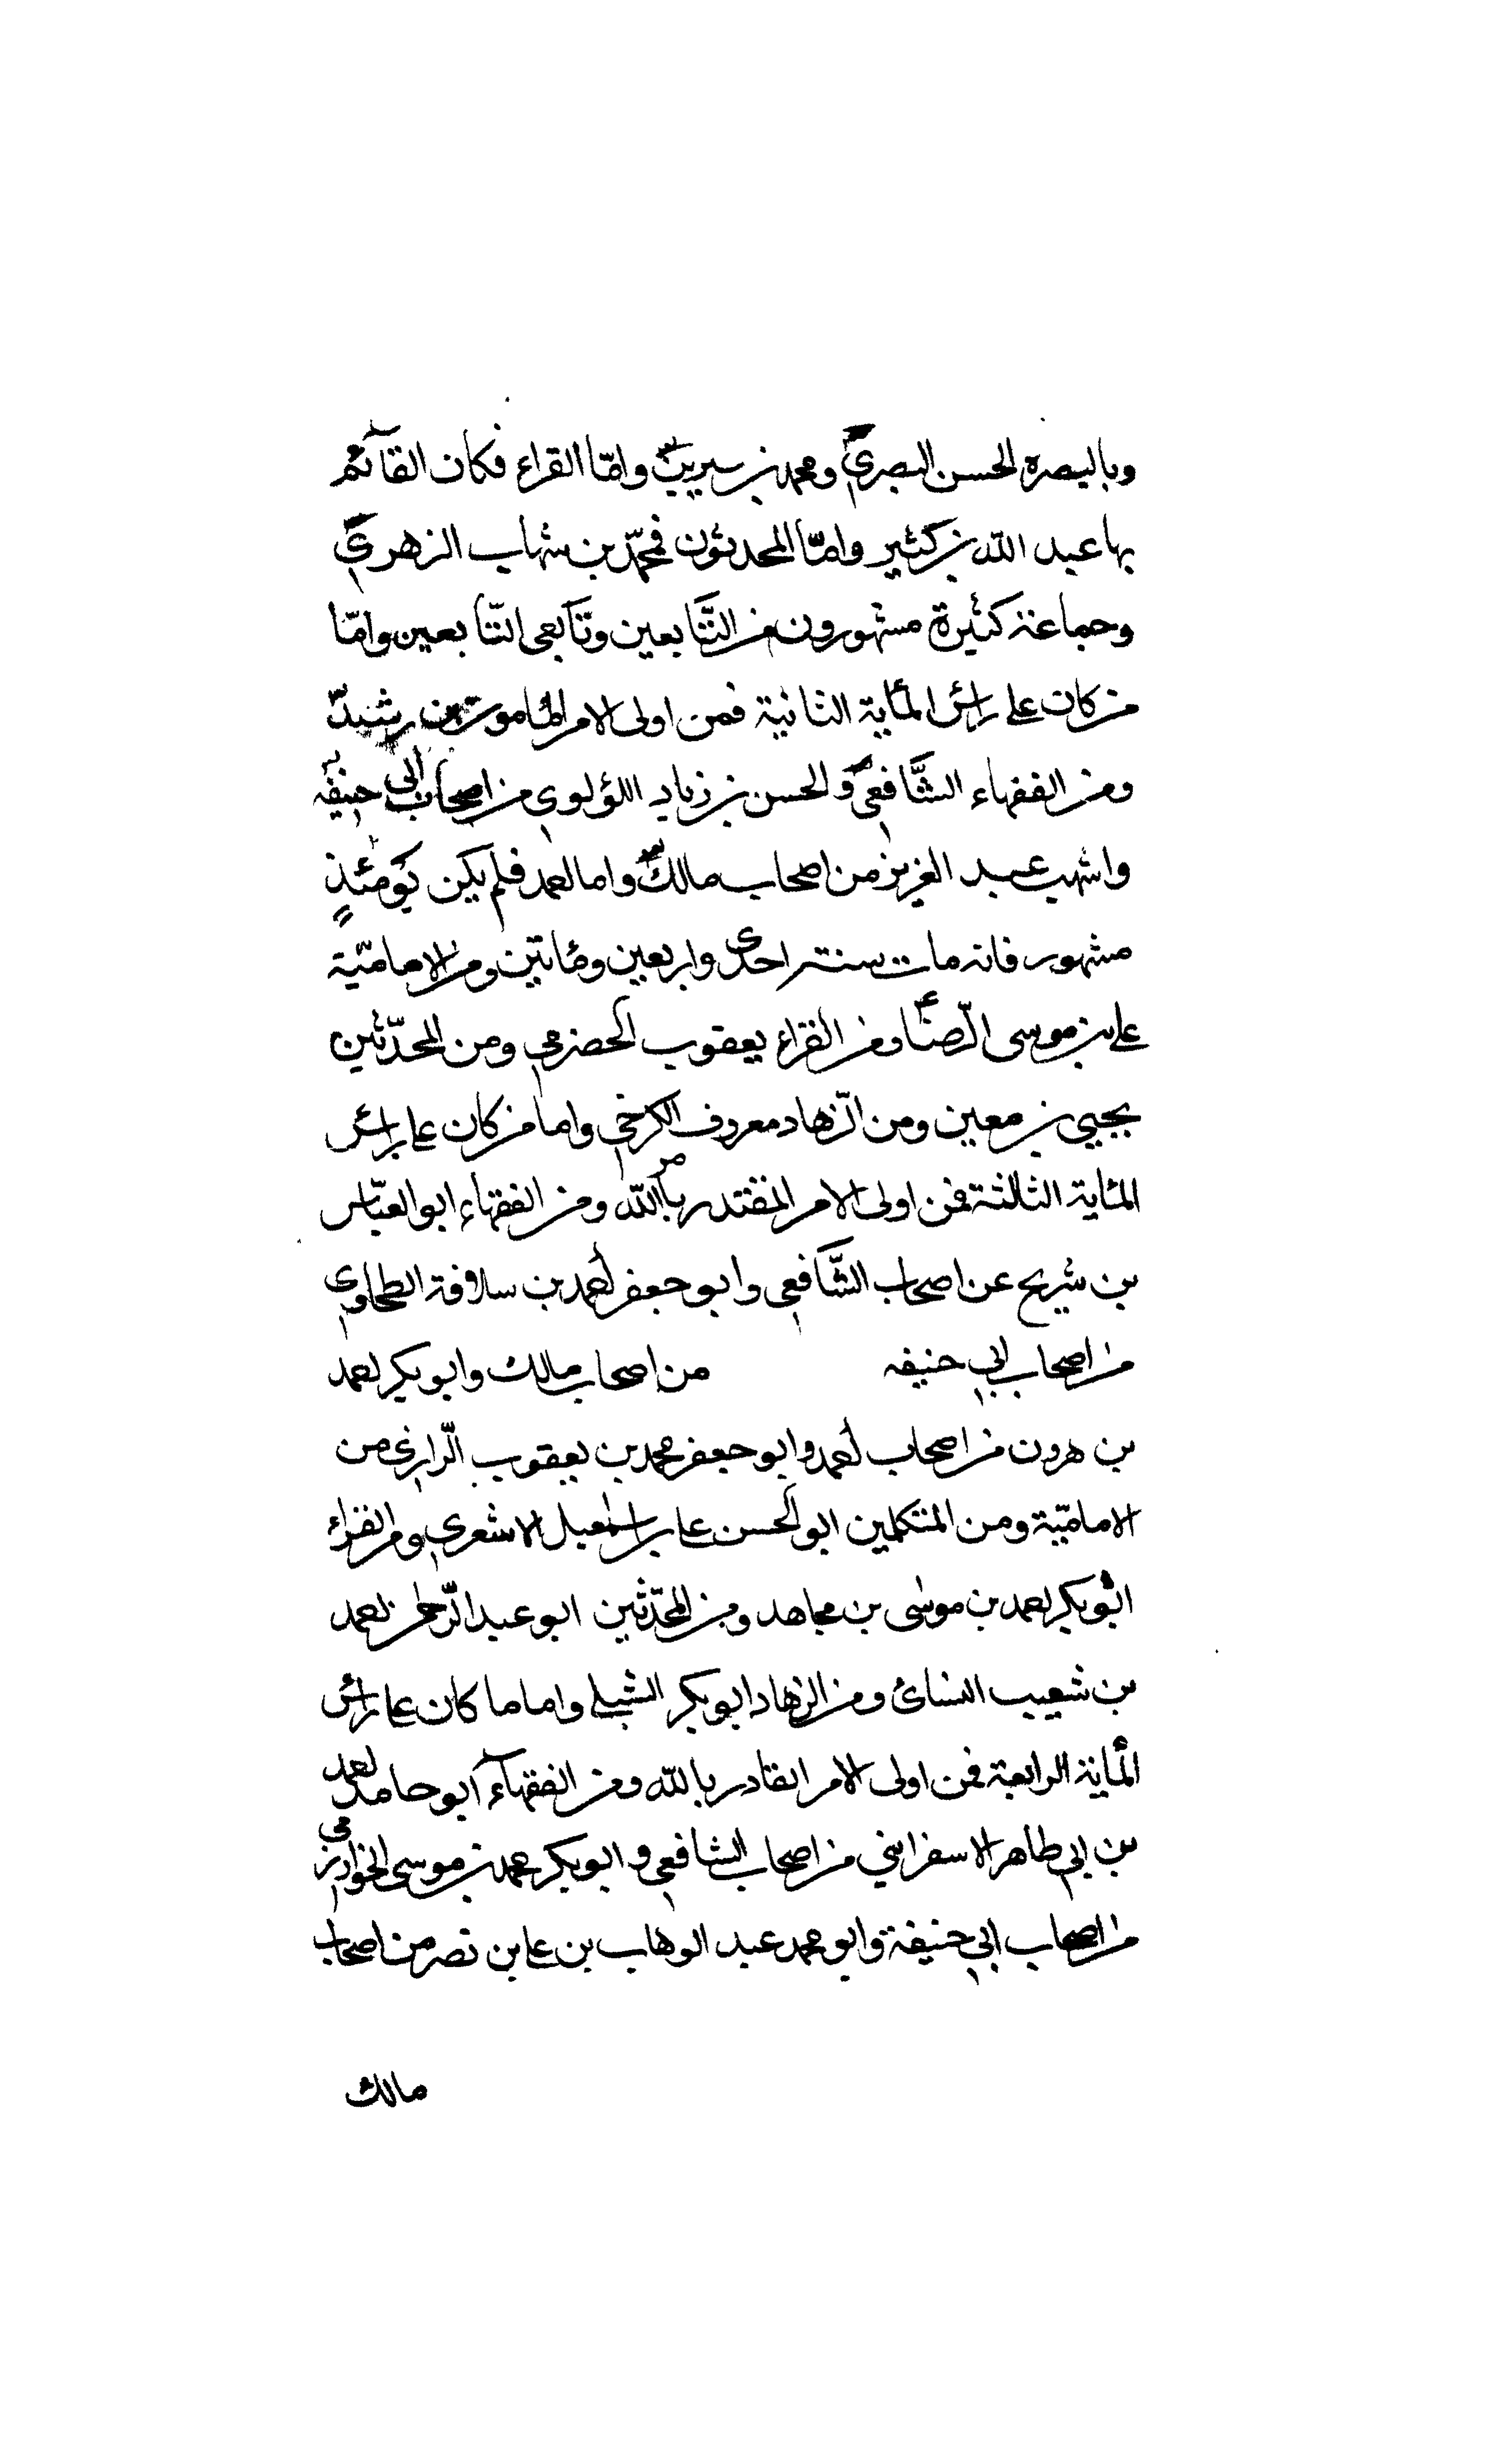 وبالبصرة الحسن البصري ومحمد بن سيرين وامّا القراء فكان القآئم
بها عبد الله بن كثير وامّا المحدثون فمحمّد بن شهاب الزهري
وجماعة كثيرة مشهورون من التّابعين وتابعى التّابعين وامّا
من كان على رأس المأية الثانية فمن اولى الامر المامون بن رشيد
ومن الفقهاء الشّافعي والحسن بن زياد اللؤلوي من اصحاب ابى حنيفه
واشهب عبد العزيز من اصحاب مالك واما احمد فلم يكن يومئذٍ
مشهور فانه مات سنة احدى واربعين ومائتين ومن الاماميّة
على بن موسى الرّضا ومن القراء يعقوب الحضرمي ومن المحدّثين
يحيى بن معين ومن الزّهاد معروف الكرخي واما من كان على رأس
المئاية الثالثة فمن اولى الامر المقتدر بالله ومن الفقهاء ابو العبّاس
بن شريح عن اصحاب الشّافعي وابو جعفر احمد بن سلافة الطحاوي
من اصحاب ابي حنيفه من اصحاب مالك وابو بكر احمد
بن هرون من اصحاب احمد وابو جعفر محمد بن يعقوب الّرازي من
الاماميّة ومن المتكلمين ابو الحسن على بن اسمعيل الاشعري ومن القراء
ابو بكر احمد بن موسى بن مجاهد ومن المحدّثين ابو عبد الرّحمن احمد
بن شعيب النسائ ومن الزهاد ابو بكر الشبلي واما ما كان على رأس
المأية الرابعة فمن اولى الامر القادر بالله ومن الفقهآء ابو حامد احمد
بن ابي طاهر الاسفرايني من اصحاب الشافعي وابو بكر محمد بن موسى الخوارزمي
من اصحاب ابي حنيفة وابو محمد عبد الوهاب بن على بن نصر من اصحاب
مالك